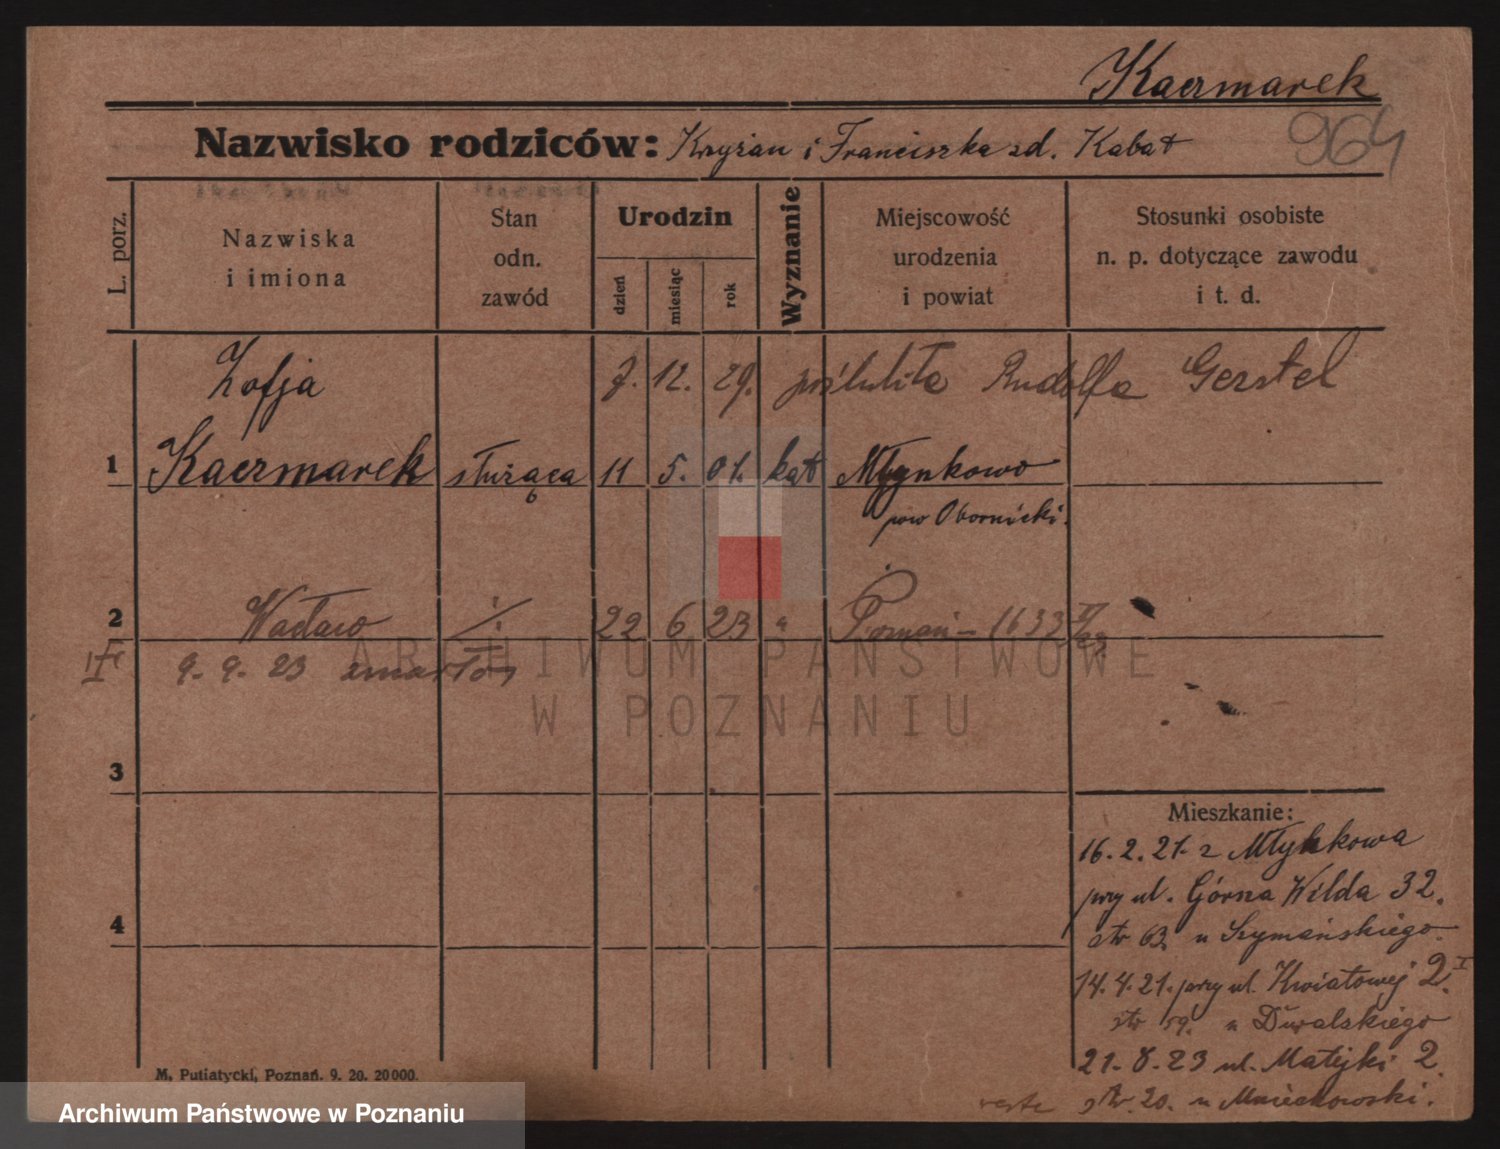 Kaczmarek
964
Nazwisko rodziców: Kryżan i Franciszka zd. Kabat
L. porz.
Nazwiska i imiona
Stan odn. zawód
Urodzin
dzień
miesiąc
rok
Wyznanie
Miejscowość urodzenia i powiat
Stosunki osobiste n. p. dotyczące zawodu i t. d.
Zofja 7. 12. 29. poślubiła Rudolfa Gerstel
1 Kaczmarek służąca 11 5. 01. kat Młynkowo
pow Obornicki.
2 Wacław ./. 22 6 23 " Poznań - 1633 II/23
9. 9. 23 zmarł
3
4
Mieszkanie:
16. 2. 21. z Młynkowa
przy ul. Górna Wilda 32.
str 63. u Szymańskiego.
14. 4. 21. przy ul. Kwiatowej 2. I
str 59. u Duwalskiego
21. 8. 23 ul. Matejki 2.
str. 20. u Mniechowski.
M. Putiatycki, Poznań. 9. 20. 20000.
ARCHIWUM PAŃSTWOWE
W POZNANIU
Archiwum Państwowe w Poznaniu